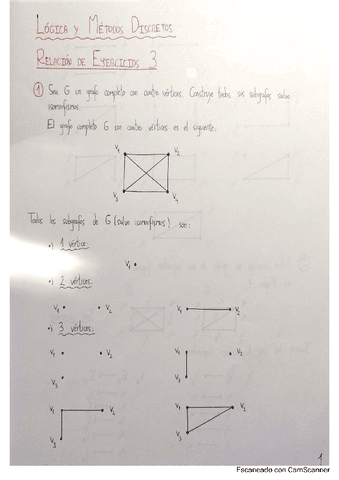 LÓGICA Y MÉTODOS DISCRETOS
RELACIÓN DE EJERCICIOS 3
1 Sea G un grafo completo con cuatro vértices. Construye todos sus subgrafos salvo
isomorfismos.
El grafo completo G con cuatro vértices es el siguiente:
V₁ V₂
V₃ V₄
Todos los subgrafos de G (salvo isomorfismos) son:
•) 1 vértice:
V₁
•) 2 vértices:
V₁ V₂ V₁ V₂
•) 3 vértices:
V₁ V₂ V₁ V₂
V₃ V₃
V₁ V₂ V₁ V₂
V₃ V₃
1
Escaneado con CamScanner